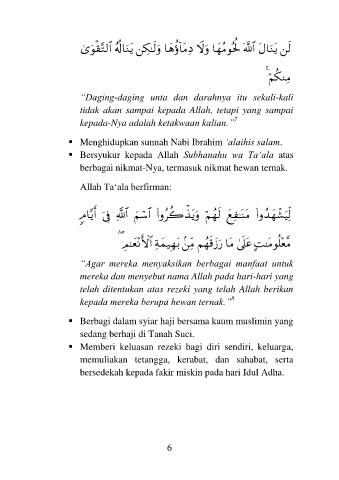 لَن يَنَالَ ٱللَّهَ لُحُومُهَا وَلَا دِمَآؤُهَا وَلَٰكِن يَنَالُهُ ٱلتَّقْوَىٰ
مِنكُمْ ۚ
“Daging-daging unta dan darahnya itu sekali-kali
tidak akan sampai kepada Allah, tetapi yang sampai
kepada-Nya adalah ketakwaan kalian.”7
▪ Menghidupkan sunnah Nabi Ibrahim ‘alaihis salam.
▪ Bersyukur kepada Allah Subhanahu wa Ta‘ala atas
berbagai nikmat-Nya, termasuk nikmat hewan ternak.
Allah Ta‘ala berfirman:
لِّيَشْهَدُوا۟ مَنَٰفِعَ لَهُمْ وَيَذْكُرُوا۟ ٱسْمَ ٱللَّهِ فِىٓ أَيَّامٍ
مَّعْلُومَٰتٍ عَلَىٰ مَا رَزَقَهُم مِّنۢ بَهِيمَةِ ٱلْأَنْعَٰمِ ۖ
“Agar mereka menyaksikan berbagai manfaat untuk
mereka dan menyebut nama Allah pada hari-hari yang
telah ditentukan atas rezeki yang telah Allah berikan
kepada mereka berupa hewan ternak.”8
▪ Berbagi dalam syiar haji bersama kaum muslimin yang
sedang berhaji di Tanah Suci.
▪ Memberi keluasan rezeki bagi diri sendiri, keluarga,
memuliakan tetangga, kerabat, dan sahabat, serta
bersedekah kepada fakir miskin pada hari Idul Adha.
6